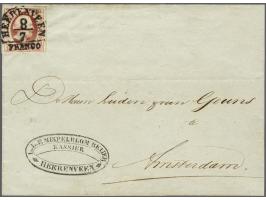 HEERENVEEN
8/7
FRANCO
De Heeren Luden & van Geuns
te
Amsterdam.
KASSIER
HEERENVEEN